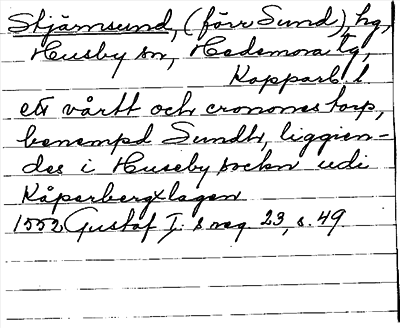 Stjärnsund, (förr Sund), hg,
Husby sn, Hedemora tg,
Kopparb l
ett vårtt och cronones torp,
benempd Sundh, liggien-
des i Huseby sockn udi
Kåperbergxlagen
1552 Gustaf I: s reg 23, s. 49.